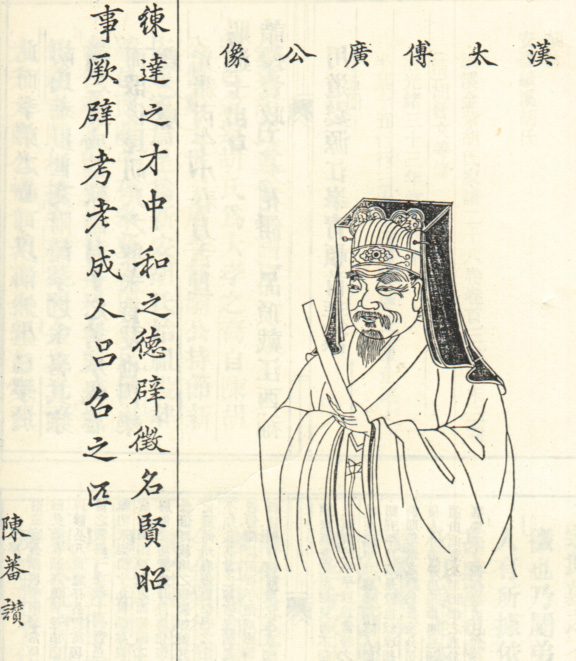 漢太傅廣公像
練達之才中和之德辟徵名賢昭
事厥辟考老成人呂召之匹
陳蕃讚